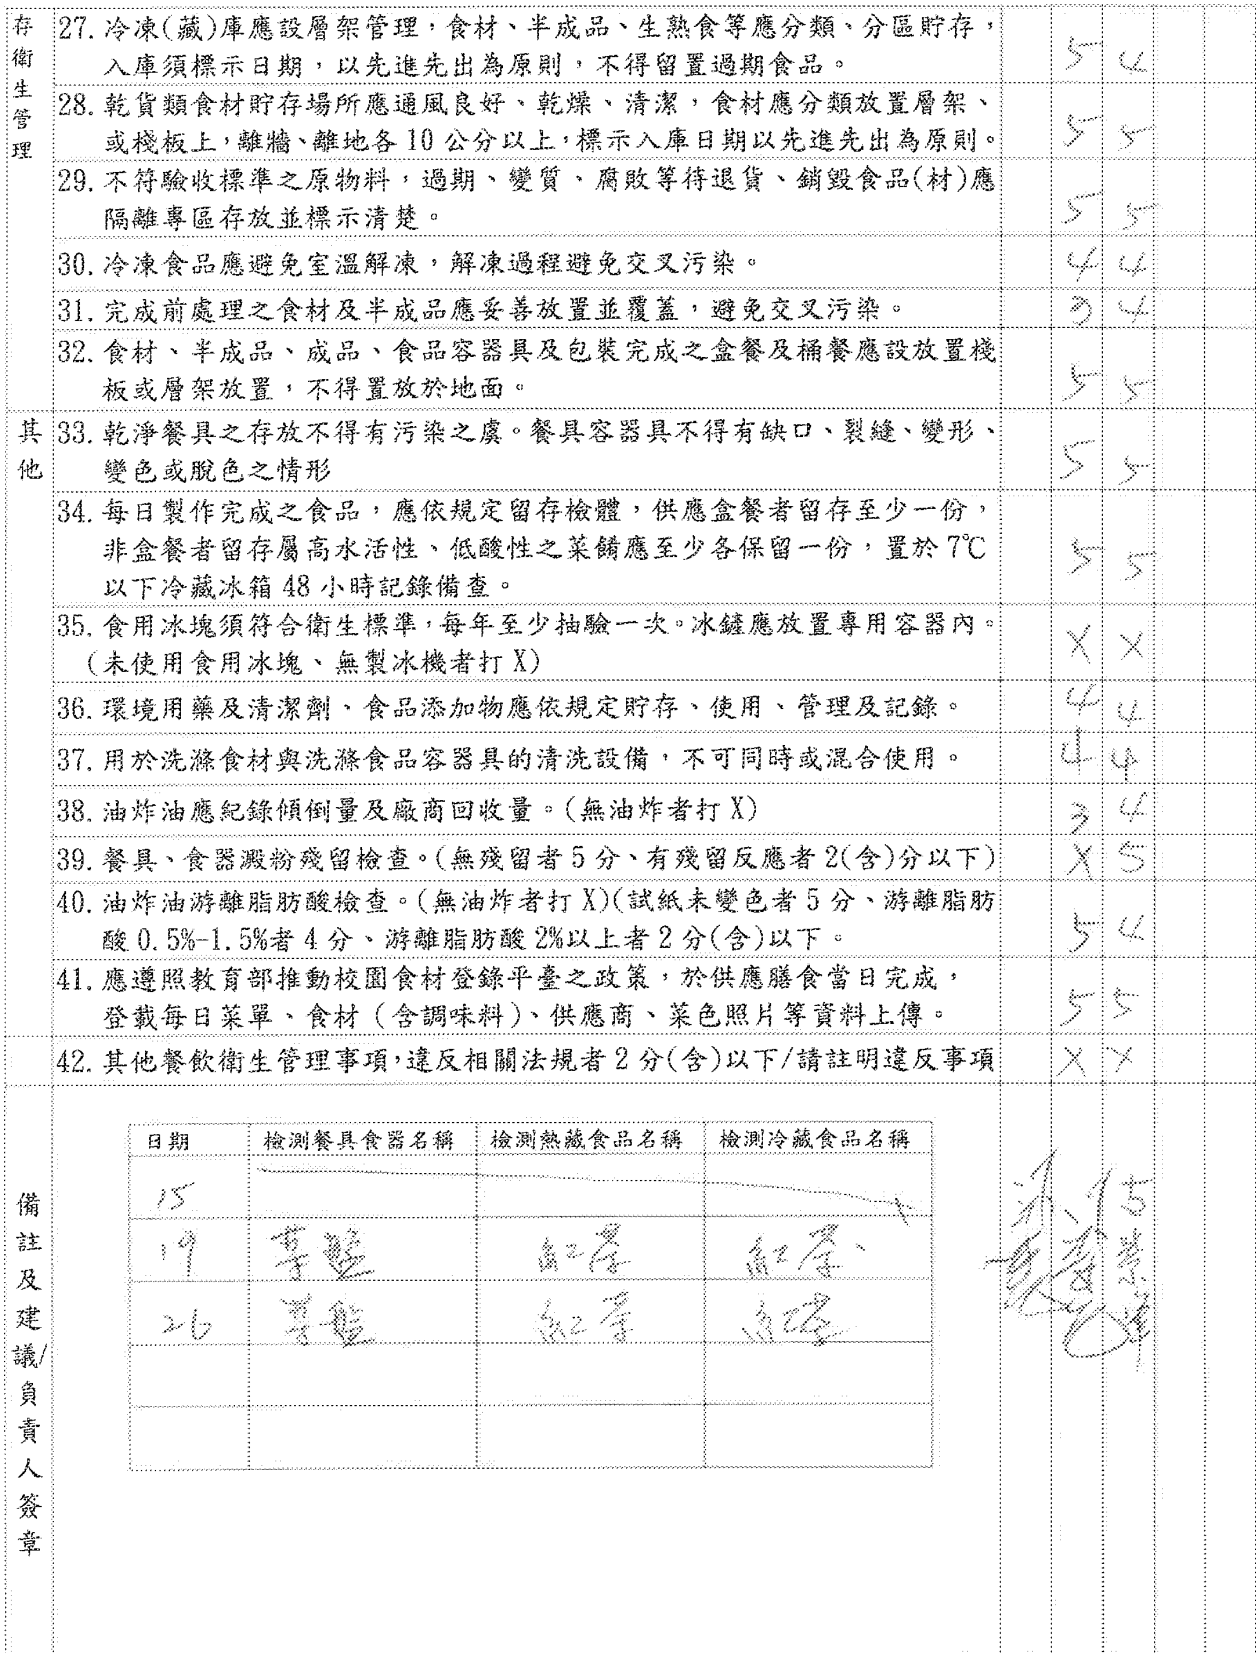 存衛生管理
27. 冷凍(藏)庫應設層架管理，食材、半成品、生熟食等應分類、分區貯存，
入庫須標示日期，以先進先出為原則，不得留置過期食品。 5 4
28. 乾貨類食材貯存場所應通風良好、乾燥、清潔，食材應分類放置層架、
或棧板上，離牆、離地各 10 公分以上，標示入庫日期以先進先出為原則。 5 5
29. 不符驗收標準之原物料，過期、變質、腐敗等待退貨、銷毀食品(材)應
隔離專區存放並標示清楚。 5 5
30. 冷凍食品應避免室溫解凍，解凍過程避免交叉污染。 4 4
31. 完成前處理之食材及半成品應妥善放置並覆蓋，避免交叉污染。 4
32. 食材、半成品、成品、食品容器具及包裝完成之盒餐及桶餐應設放置棧
板或層架放置，不得置放於地面。 5 5
其他
33. 乾淨餐具之存放不得有污染之虞。餐具容器具不得有缺口、裂縫、變形、
變色或脫色之情形 5 5
34. 每日製作完成之食品，應依規定留存檢體，供應盒餐者留存至少一份，
非盒餐者留存屬高水活性、低酸性之菜餚應至少各保留一份，置於 7℃
以下冷藏冰箱 48 小時記錄備查。 5 5
35. 食用冰塊須符合衛生標準，每年至少抽驗一次。冰鏟應放置專用容器內。
(未使用食用冰塊、無製冰機者打 X) X X
36. 環境用藥及清潔劑、食品添加物應依規定貯存、使用、管理及記錄。 4 4
37. 用於洗滌食材與洗滌食品容器具的清洗設備，不可同時或混合使用。 4 4
38. 油炸油應紀錄傾倒量及廠商回收量。(無油炸者打 X) 3 4
39. 餐具、食器澱粉殘留檢查。(無殘留者 5 分、有殘留反應者 2(含)分以下) X 5
40. 油炸油游離脂肪酸檢查。(無油炸者打 X)(試紙未變色者 5 分、游離脂肪
酸 0.5%-1.5%者 4 分、游離脂肪酸 2%以上者 2 分(含)以下。 5 4
41. 應遵照教育部推動校園食材登錄平臺之政策，於供應膳食當日完成，
登載每日菜單、食材（含調味料）、供應商、菜色照片等資料上傳。 5 5
42. 其他餐飲衛生管理事項，違反相關法規者 2 分(含)以下/請註明違反事項 X X
備註及建議/負責人簽章
日期 檢測餐具食器名稱 檢測熱藏食品名稱 檢測冷藏食品名稱
15
19 紅茶 紅茶
26 紅茶 紅茶